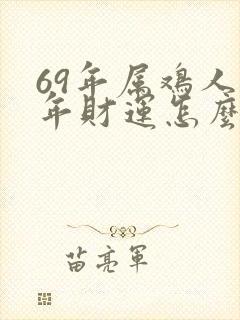 69年属鸡人
年财运怎麽
苗亮军